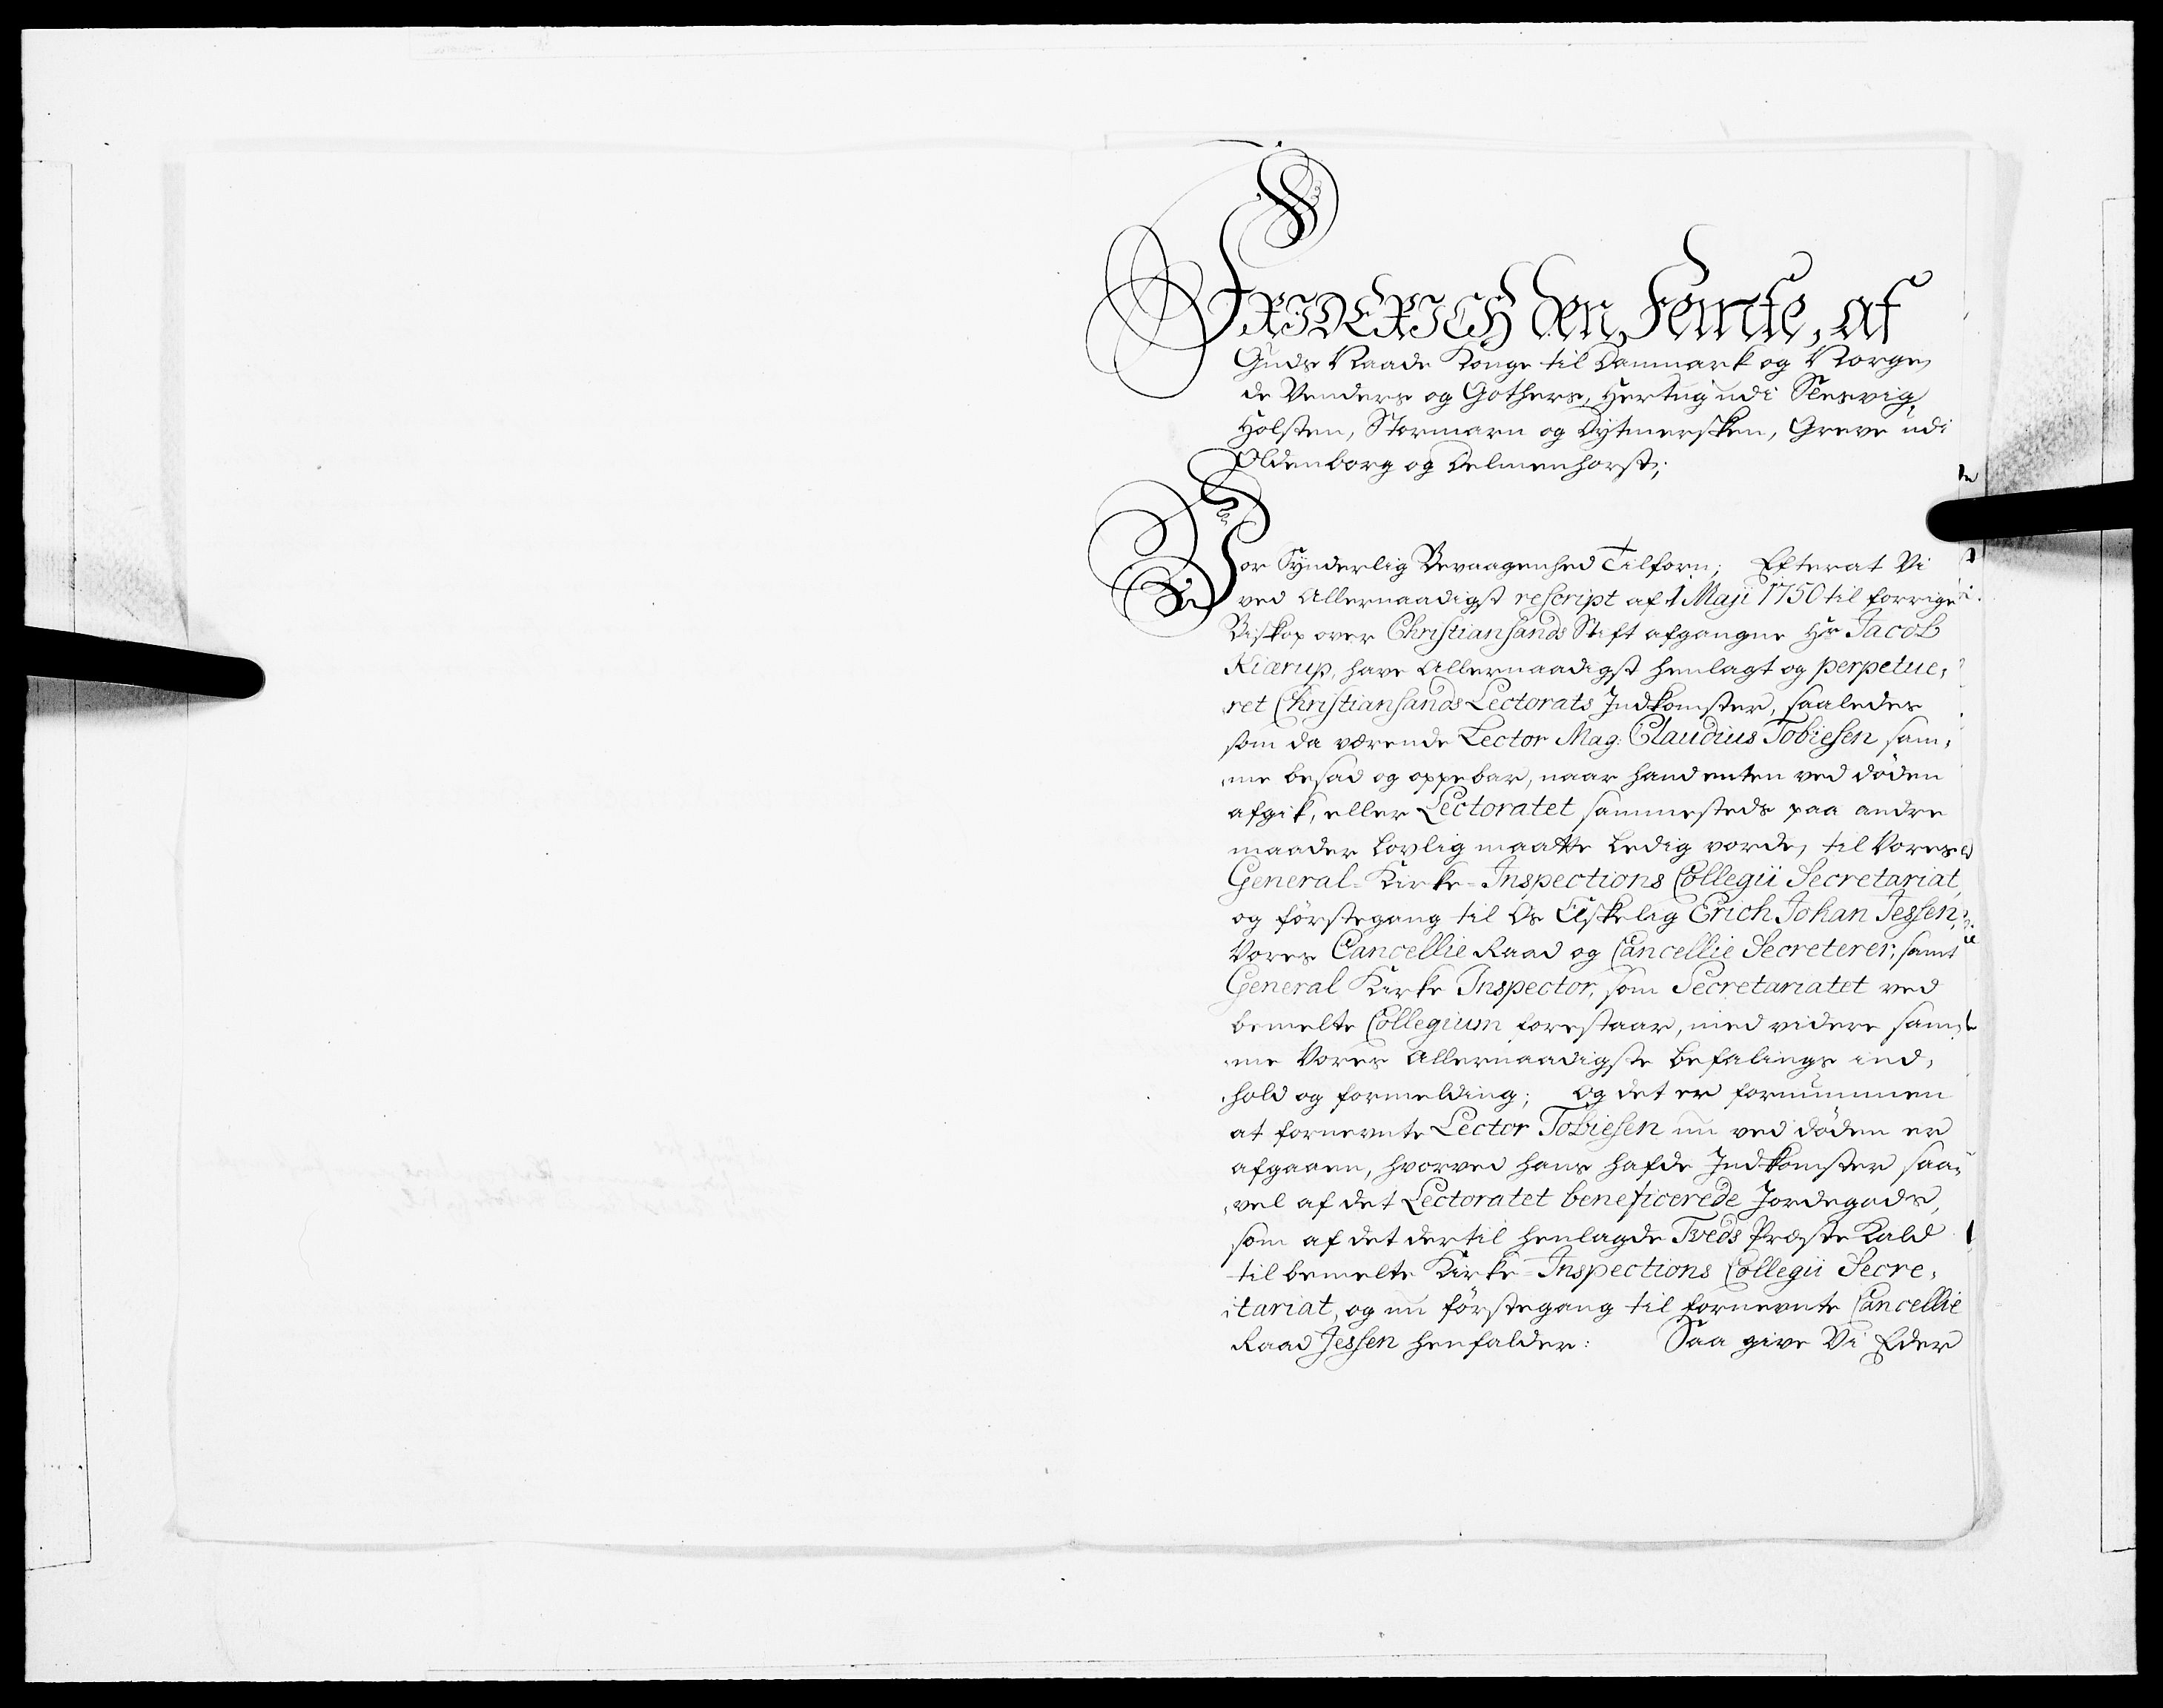 FRIDERICH den Femte, af
Guds Naade Konge til Danmark og Norge,
de Venders og Gothers, Hertug udi Slesvig,
Holsten, Stormarn og Dytmersken, Greve udi
Oldenborg og Delmenhorst;
Vor Synderlig Bevaagenhed Tilforn; Efterat Vi
ved Allernaadigst rescript af 1 Maji 1750 til forrige
Biskop over Christiansands Stift afgangne Hr Jacob
Kiærup, have Allernaadigst henlagt og perpetue,
,ret Christiansands Lectorats Indkomster, saaledes
som da værende Lector Mag: Claudius Tobiesen sam,
,me besad og oppebar, naar hand enten ved døden
afgik, eller Lectoratet sammesteds paa andre
maader lovlig maatte ledig vorde, til Vores
General-Kirke-Inspections Collegii Secretariat,
og førstegang til Os Elskelig Erich Johan Jessen,
Vores Cancellie Raad og Cancellie Secreterer, samt
General Kirke Inspector, som Secretariatet ved
bemelte Collegium forestaar, med videre sam,
,me Vores Allernaadigste befalings ind,
,hold og formelding; Og det er fornummen
at fornevnte Lector Tobiesen nu ved døden er
afgaaen, hvorved hans hafde Indkomster saa,
,vel af det Lectoratet beneficerede Jordegods,
som af det dertil henlagde Tveds Præste Kald
til bemelte Kirke-Inspections Collegii Secre,
,tariat, og nu førstegang til fornevnte Cancellie
Raad Jessen henfalder: Saa give Vi Eder